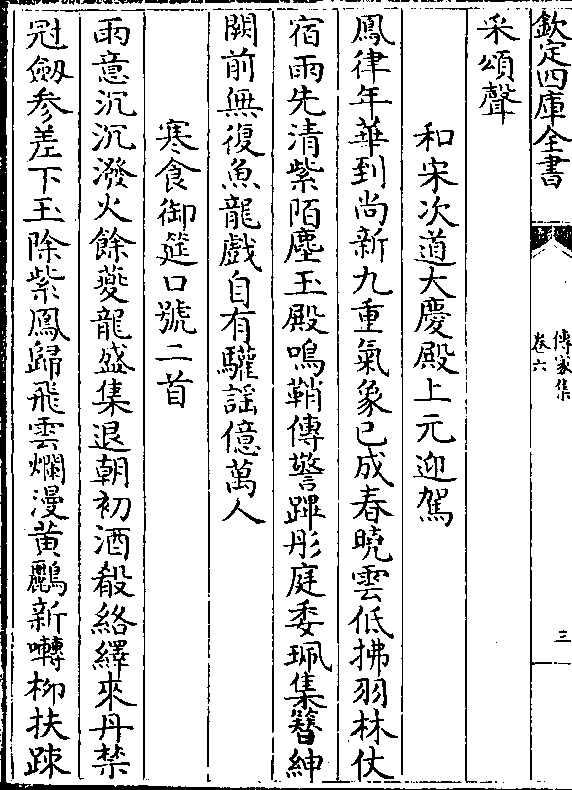 欽定四庫全書
傳家集
卷六
三
采頌聲
和宋次道大慶殿上元迎駕
鳳律年華到尚新九重氣象已成春曉雲低拂羽林仗
宿雨先清紫陌塵玉殿鳴鞘傳警蹕彤庭委珮集簪紳
闕前無復魚龍戲自有驩謡億萬人
寒食御筵口號二首
雨意沉沉潑火餘夔龍盛集退朝初酒殽絡繹來丹禁
冠劔参差下玉除紫鳳歸飛雲爛漫黃鸝新囀柳扶踈